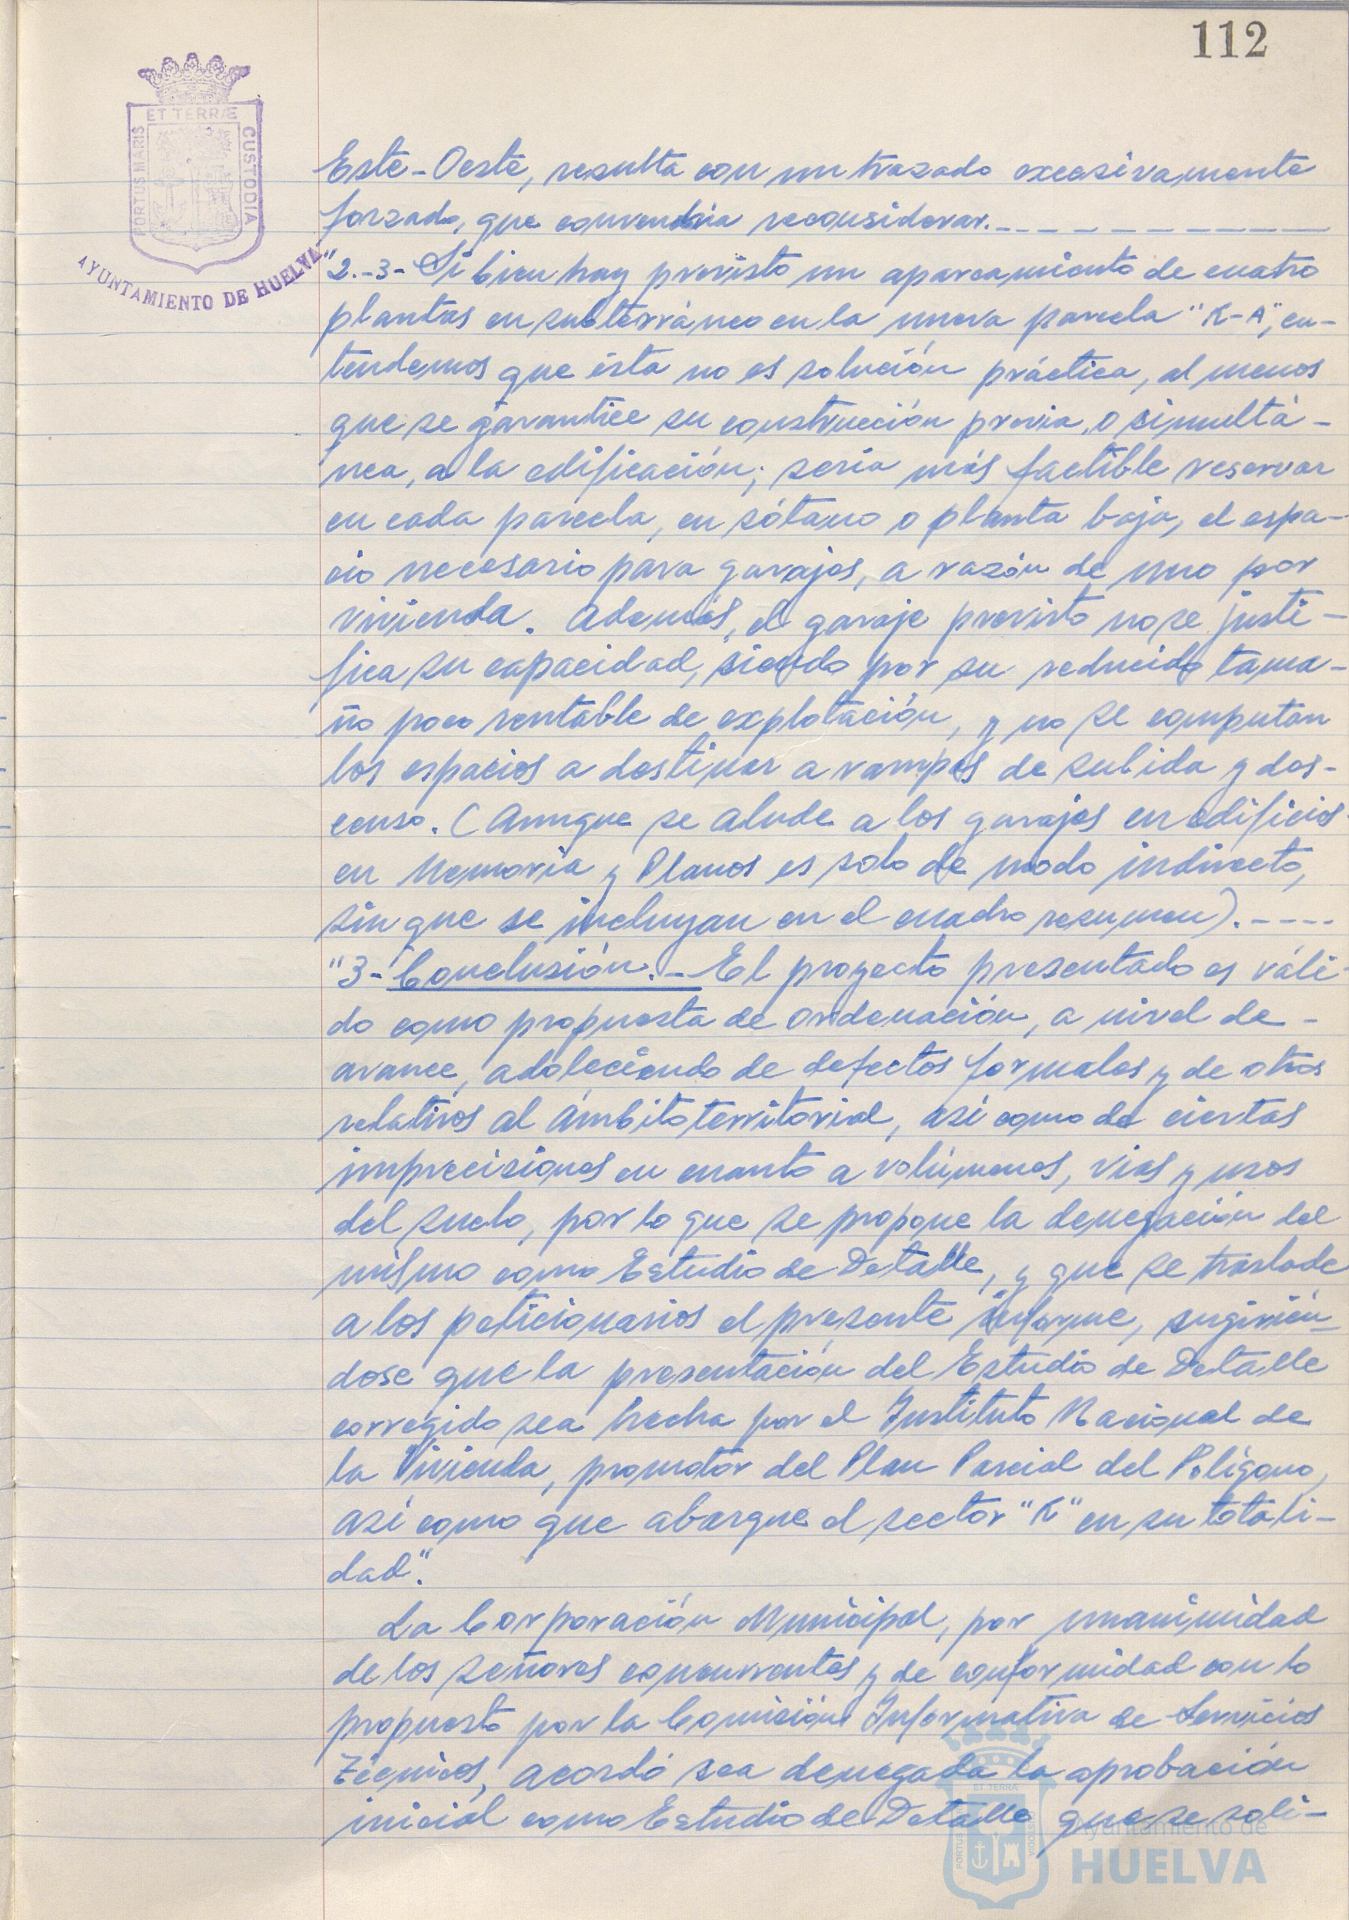 112
ET TERRÆ
PORTUS MARIS
CUSTODIA
AYUNTAMIENTO DE HUELVA
Este-Oeste, resulta con un trazado excesivamente
forzado, que convendría reconsiderar.
"2.-3- Si bien hay previsto un aparcamiento de cuatro
plantas en subterráneo en la nueva parcela "K-A", en-
tendemos que ésta no es solución práctica, al menos
que se garantice su construcción previa, o simultá-
nea, a la edificación; sería más factible reservar
en cada parcela, en sótano o planta baja, el espa-
cio necesario para garajes, a razón de uno por
vivienda. Además, el garaje previsto no se justi-
fica su capacidad, siendo por su reducido tama-
ño poco rentable de explotación, y no se computan
los espacios a destinar a rampas de subida y des-
censo. (Aunque se alude a los garajes en edificios
en Memoria y Planos es solo de modo indirecto,
sin que se incluyan en el cuadro resumen).----
"3- Conclusión.- El proyecto presentado es váli-
do como propuesta de ordenación, a nivel de-
avance, adoleciendo de defectos formales y de otros
relativos al ámbito territorial, así como de ciertas
imprecisiones en cuanto a volúmenes, vías y usos
del suelo, por lo que se propone la denegación del
mismo como Estudio de Detalle, y que se traslade
a los peticionarios el presente informe, sugirién-
dose que la presentación del Estudio de Detalle
corregido sea hecha por el Instituto Nacional de
la Vivienda, promotor del Plan Parcial del Polígono,
así como que abarque el sector "K" en su totali-
dad".
La Corporación Municipal, por unanimidad
de los señores concurrentes y de conformidad con lo
propuesto por la Comisión Informativa de Servicios
Técnicos, acordó sea denegada la aprobación
inicial como Estudio de Detalle que se soli-
Ayuntamiento de
HUELVA